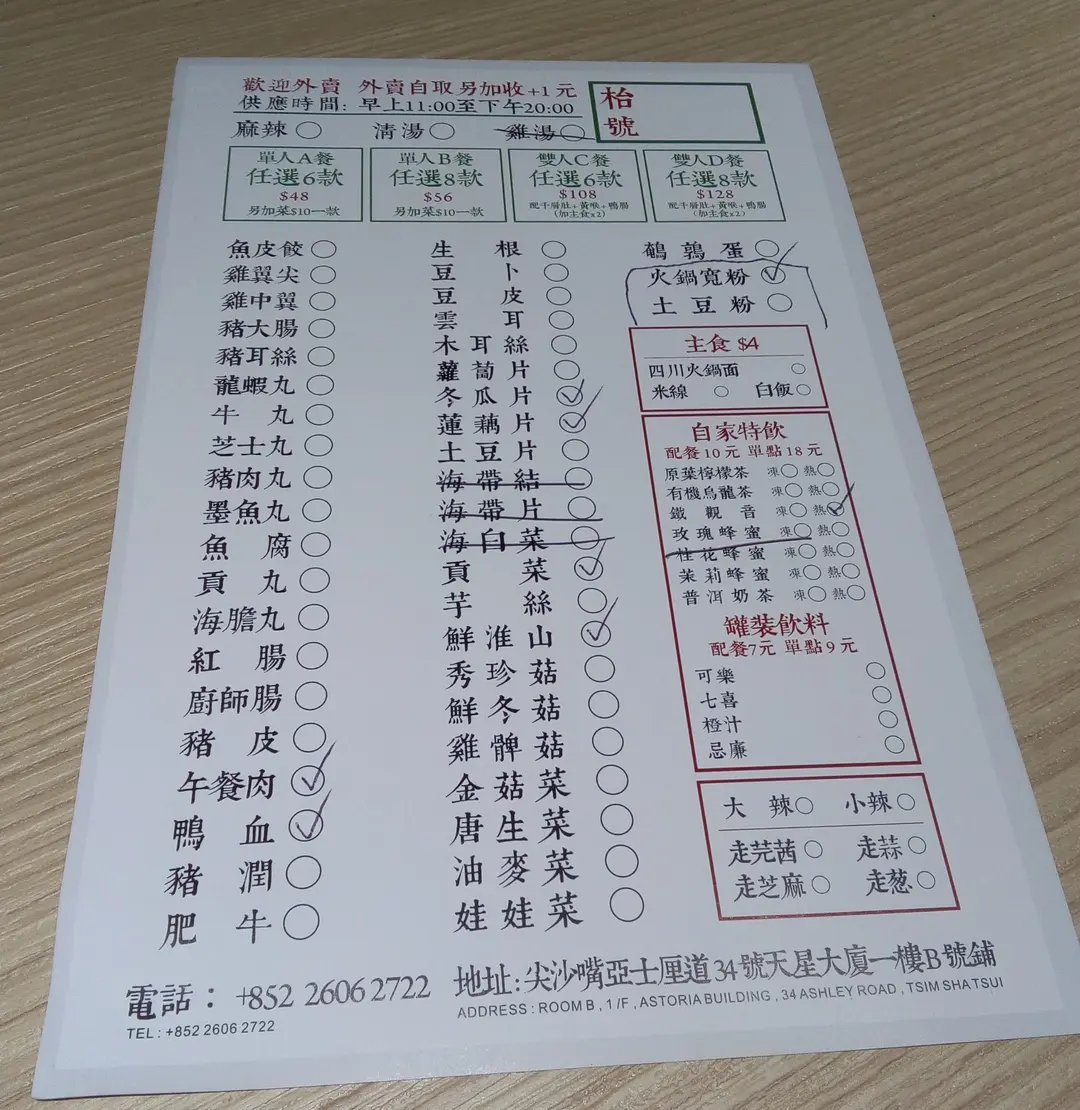 歡迎外賣 外賣自取另加收+1元
供應時間: 早上11:00至下午20:00
枱號
麻辣 清湯 雞湯
單人A餐
任選6款
$48
另加菜$10一款
單人B餐
任選8款
$56
另加菜$10一款
雙人C餐
任選6款
$108
配千層肚+黃喉+鴨腸
(加主食x2)
雙人D餐
任選8款
$128
配千層肚+黃喉+鴨腸
(加主食x2)
魚皮餃
雞翼尖
雞中翼
豬大腸
豬耳絲
龍蝦丸
牛丸
芝士丸
豬肉丸
墨魚丸
魚腐
貢丸
海膽丸
紅腸
廚師腸
豬皮
午餐肉
鴨血
豬潤
肥牛
生根
豆卜
豆皮
雲耳
木耳絲
蘿蔔片
冬瓜片
蓮藕片
土豆片
海帶結
海帶片
海白菜
貢菜
芋絲
鮮淮山
秀珍菇
鮮冬菇
雞髀菇
金菇菜
唐生菜
油麥菜
娃娃菜
鵪鶉蛋
火鍋寬粉
土豆粉
主食 $4
四川火鍋面
米線 白飯
自家特飲
配餐10元 單點18元
原葉檸檬茶 凍 熱
有機烏龍茶 凍 熱
鐵觀音 凍 熱
玫瑰蜂蜜 凍 熱
桂花蜂蜜 凍 熱
茉莉蜂蜜 凍 熱
普洱奶茶 凍 熱
罐裝飲料
配餐7元 單點9元
可樂
七喜
橙汁
忌廉
大辣 小辣
走芫茜 走蒜
走芝麻 走葱
電話: +852 2606 2722
TEL: +852 2606 2722
地址:尖沙嘴亞士厘道34號天星大廈一樓B號鋪
ADDRESS : ROOM B , 1 /F , ASTORIA BUILDING , 34 ASHLEY ROAD , TSIM SHA TSUI